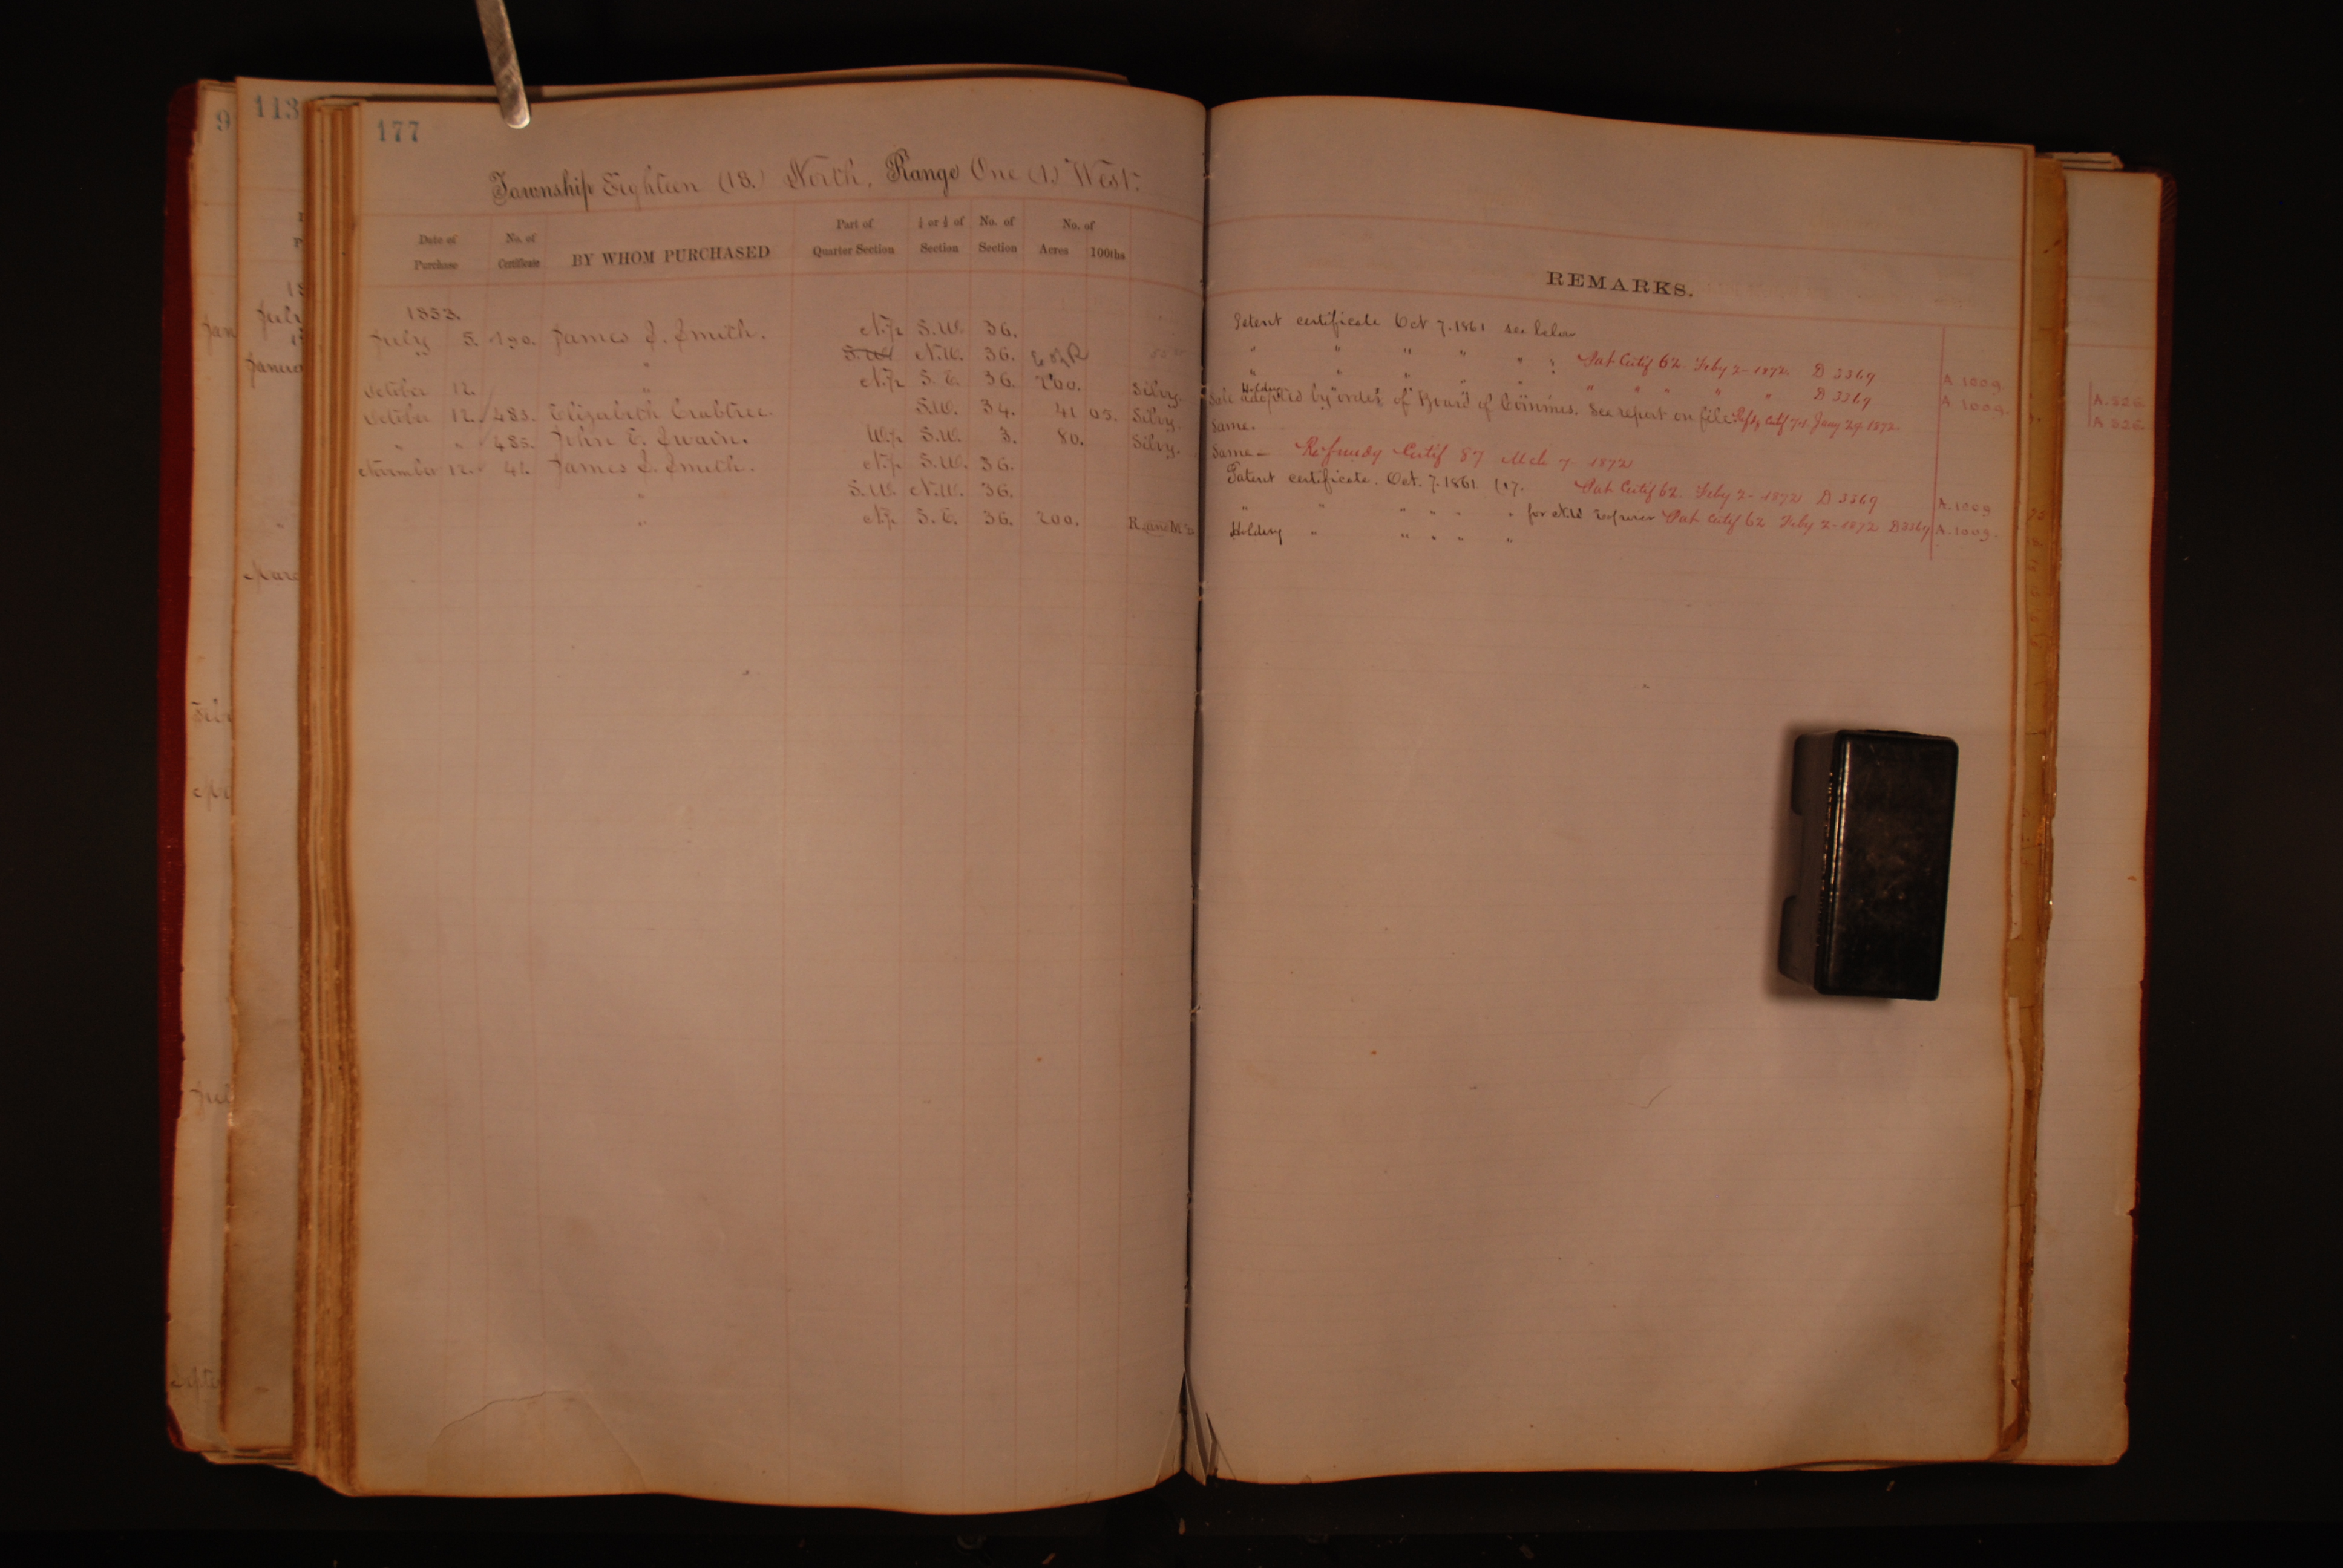 9
113
177
Township Eighteen (18.) North, Range One (1.) West.
Date of Purchase
No. of Certificate
BY WHOM PURCHASED
Part of Quarter Section
No. of Section
No. of Acres 100ths
REMARKS.
1853.
July 5. 190. James S. Smith. N.½ S.W. 36. Patent certificate Oct 7. 1861 see below
" S.W. N.W. 36. " " " " " Pat Certif 62. Feby 2- 1872. D 3369 A.1009
October 12. " N.½ S.E. 36. 200. D 3369 A.1009.
October 12. 483. Elizabeth Crabtree. S.W. 34. 41 05. Selvy. Sale adopted by order of Board of Commes. See report on file Jany 29. 1872.
" " 485. John E. Swain. W.½ S.W. 3. 80. Selvy. Same.
Same - Refundy Certif 87 Mch 7 1872
November 12. 41. James S. Smith. N.½ S.W. 36. Patent certificate. Oct. 7. 1861. (17. Pat Certif 62. Feby 2- 1872 D 3369 A.1009
" S.W. N.W. 36. " " " " " " for Pat Certif 62 Feby 2- 1872 D 3369 A.1009.
" N.½ S.E. 36. 200. Holding " " " " "
A.326
A 326.